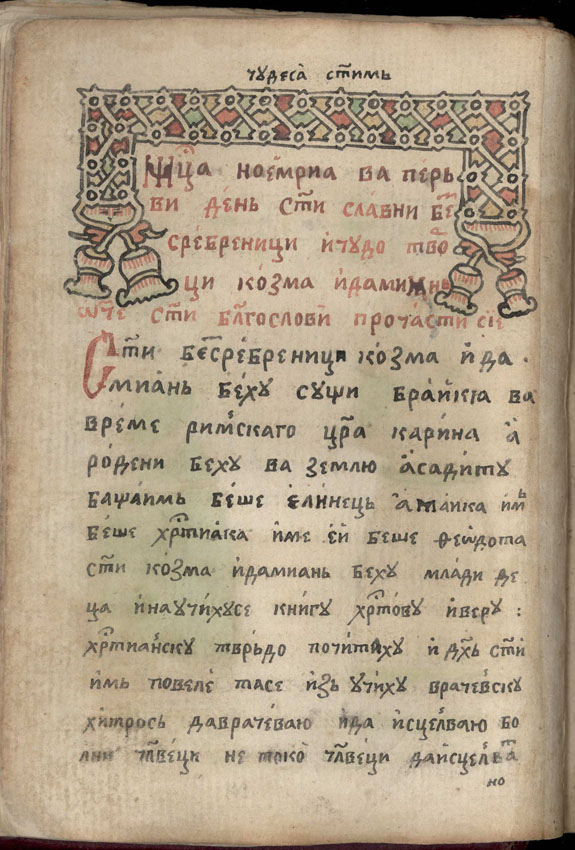 чꙋдеса̀ ст҃имь
Мц҃а ноемриа ва перь
ви день ст҃и славни бе
сребреници и чꙋдо тво
ци козма и дамиань
ѿче ст҃и бл҃гослови прочасти сїе
Ст҃и бесребреници козма и да
миань бехꙋ сꙋщи браикіа ва
време римскаго цр҃а карина а
родени бехꙋ ва землю асадитꙋ
башаимь беше елинець а маика имь
беше хр҃тиака име еи беше ѳеѡдота
ст҃и козма и дамиань бехꙋ млади де
ца и наꙋчихꙋсе книгꙋ хр҃товꙋ и верꙋ :
хр҃тианскꙋ тврьдо почитахꙋ и дх҃ь ст҃и
имь повеле тасе изь ꙋчихꙋ врачевскꙋ
хитрось да врачеваю и да исцелваю бо
лни чл҃веци не токо чл҃веци да исцелва
но